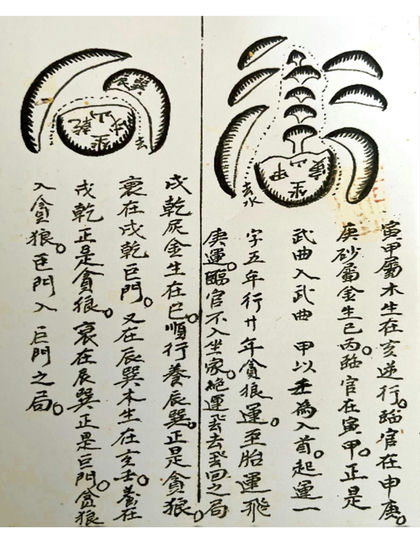 寅甲屬木生在亥逆行。臨官在申庚。
庚砂屬金生巳丙臨官在寅甲。正是
武曲入武曲　甲以壬為入首。起運一
字五年行廿年貪狼運。至胎運飛
庚運。臨官不入坐家。絕運飛去去回之局
去水
庚山甲
坐
戌乾辰金生在巳。順行養辰巽。正是貪狼。
衰在戌乾巨門。又在辰巽木生在亥壬養在
戌乾正是貪狼。衰在辰巽正是巨門。貪狼
入貪狼。巨門入巨門之局。
巽辰
戌山乾
坐
去